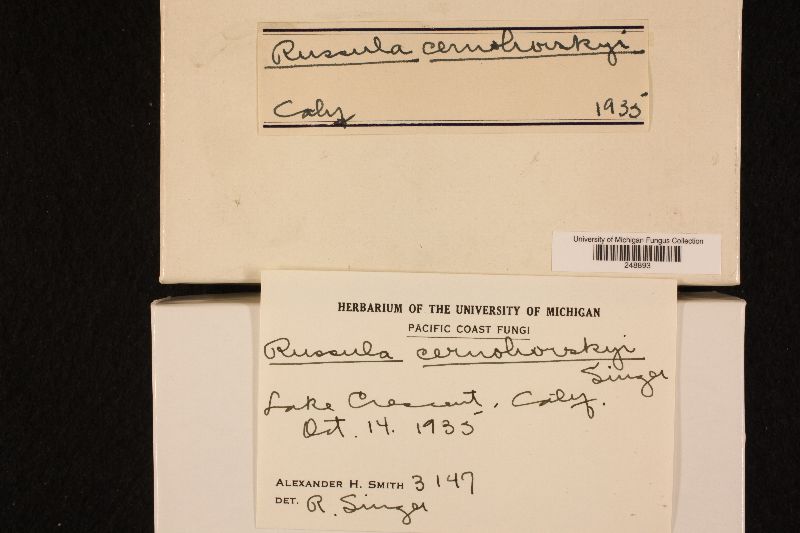 Russula cernohorskyi
Calif 1935
University of Michigan Fungus Collection
248893
HERBARIUM OF THE UNIVERSITY OF MICHIGAN
PACIFIC COAST FUNGI
Russula cernohorskyi
Singer
Lake Crescent, Calif.
Oct. 14. 1935
ALEXANDER H. SMITH 3147
DET. R. Singer